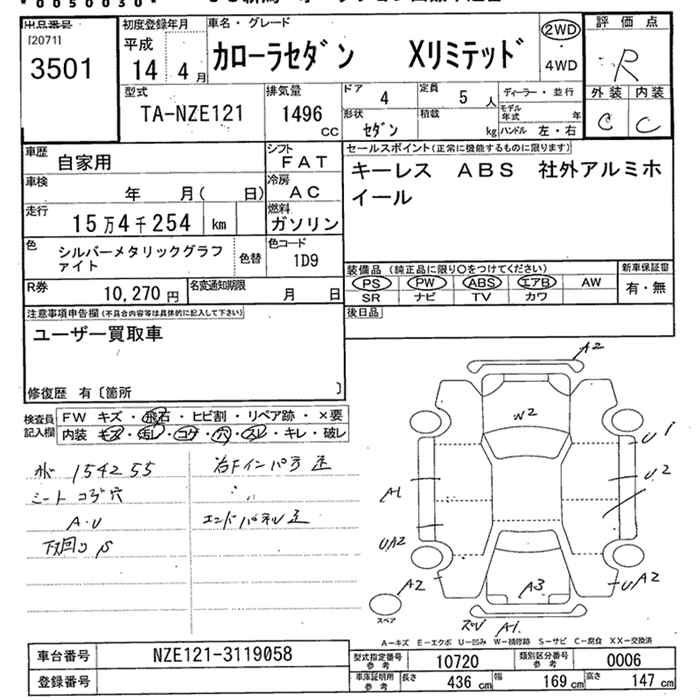 *0050030*
出品番号
[2071]
3501
初度登録年月
平成
14 年 4 月
車名・グレード
カローラセダン Xリミテッド
2WD
・4WD
評価点
R
外装 内装
C C
型式
TA-NZE121
排気量
1496 cc
ドア
4
定員
5 人
形状
セダン
積載
kg
ディーラー・並行
モデル年式 年
ハンドル 左・右
車歴
自家用
シフト
FAT
車検
年 月( 日)
冷房
AC
走行
15万4千254 km
燃料
ガソリン
色
シルバーメタリックグラファイト
色替
色コード
1D9
R券
10,270 円
名変通知期限
月 日
セールスポイント(正常に機能するものに限ります)
キーレス ABS 社外アルミホ
イール
装備品(純正品に限り○をつけてください)
新車保証書
PS PW ABS エアB AW
有・無
SR ナビ TV カワ
後日品
注意事項申告欄(不具合内容等は具体的に記入して下さい)
ユーザー買取車
修復歴 有〔箇所 〕
検査員
記入欄
FW キズ・飛石・ヒビ割・リペア跡・×要
内装 キズ・汚レ・コゲ・穴・スレ・キレ・破レ
154255
シート コゲ穴
A・U
下回りS
右Fインパネ 歪
〃
エンドパネル 歪
A2
W2
U1
U2
A1
UA2
A2
A3
UA2
A1
スペア
A-キズ E-エクボ U-凹み W-補修跡 S-サビ C-腐食 XX-交換済
車台番号
NZE121-3119058
登録番号
型式指定番号
参考
10720
類別区分番号
参考
0006
車庫証明用
参考
長さ 436 cm 幅 169 cm 高さ 147 cm